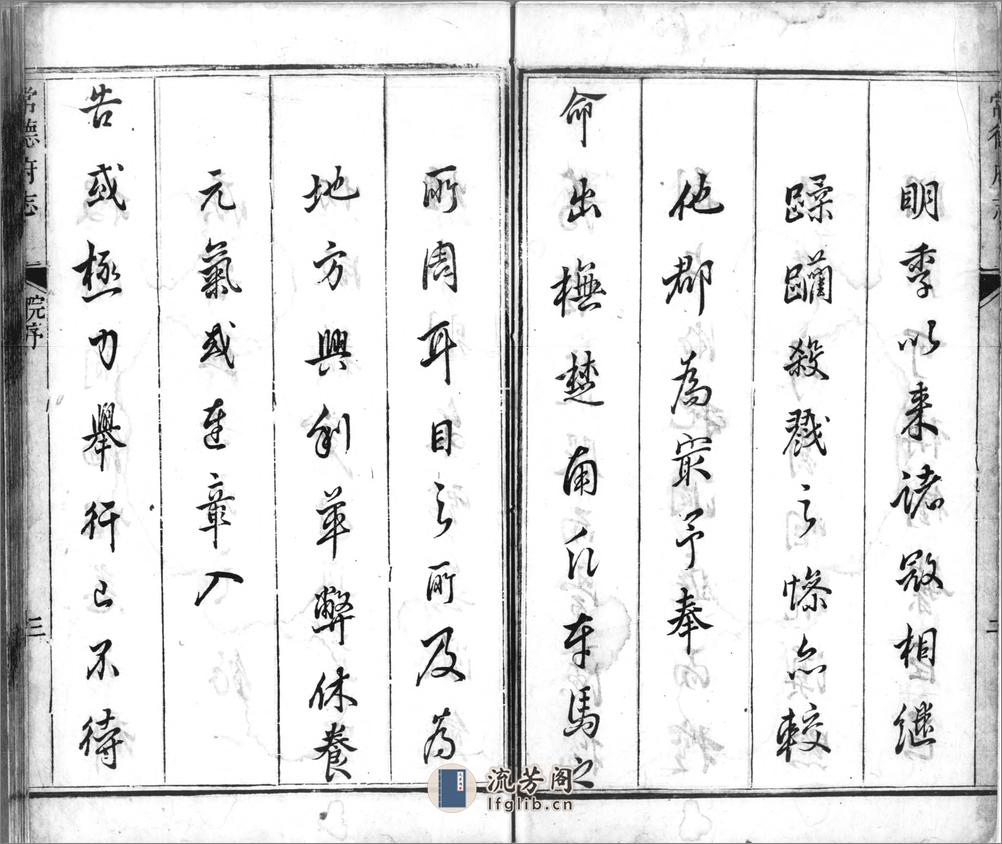 明季以來諸寇相繼
蹂躪殺戮之慘亦較
他郡為最予奉
命出撫楚南凡車馬之
所周耳目之所及為
地方興利革弊休養
元氣或連章入
告或極力舉行已不待
常德府志
院序
三
流芳阁
lfglib.cn